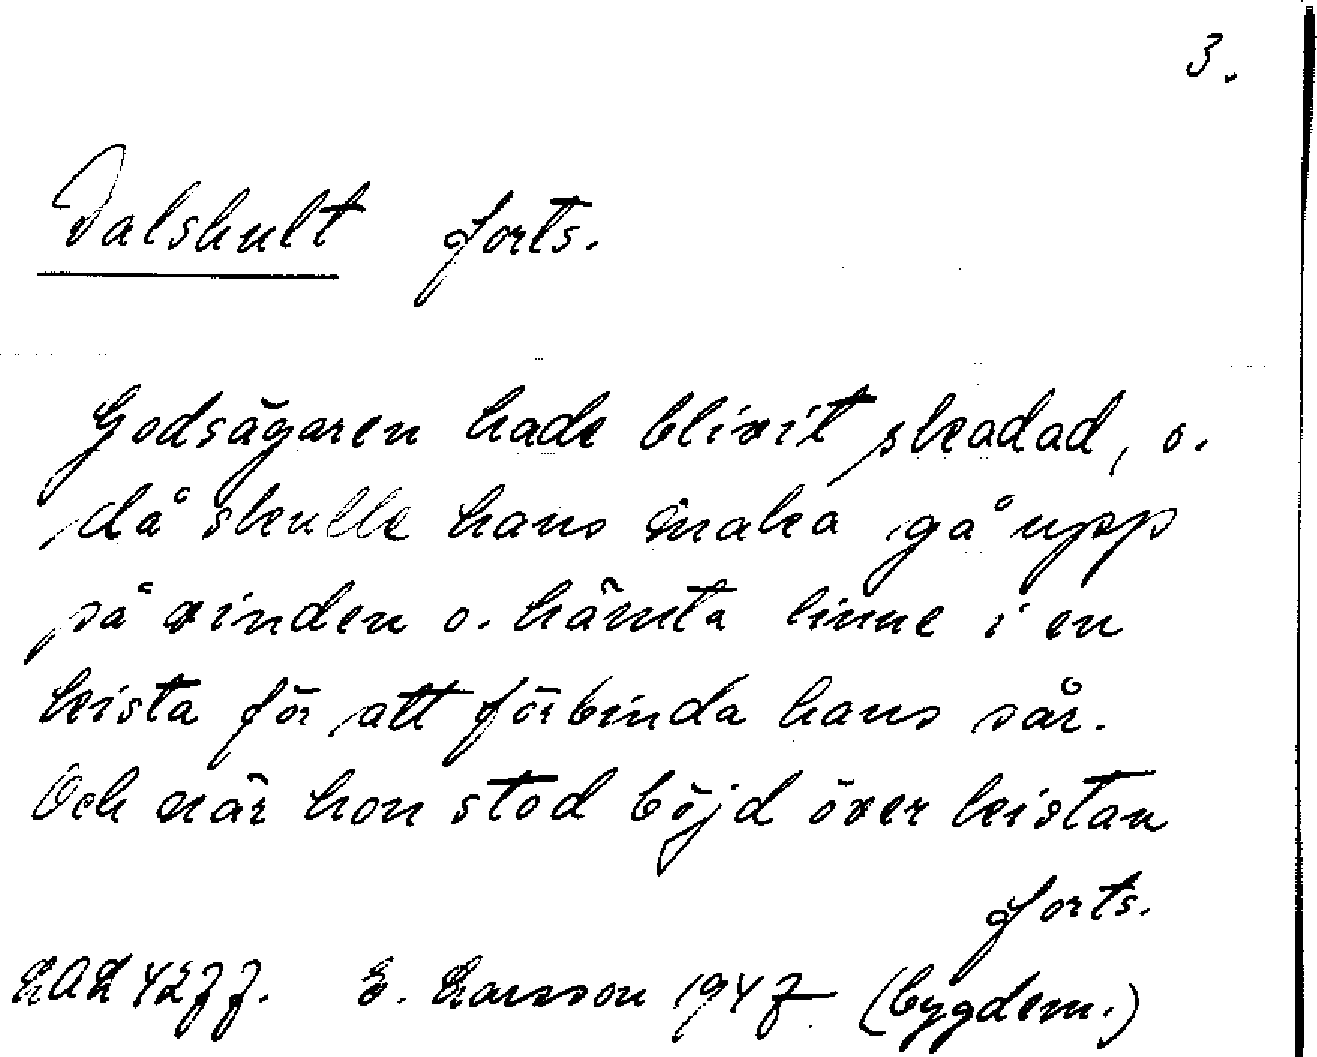 3.
Dalshult forts.
Godsägaren hade blivit skadad, o.
då skulle hans maka gå upp
på vinden o. hämta linne i en
kista för att förbinda hans sår.
Och när hon stod böjd över kistan
forts.
E. Larsson 1947 (bygdem.)